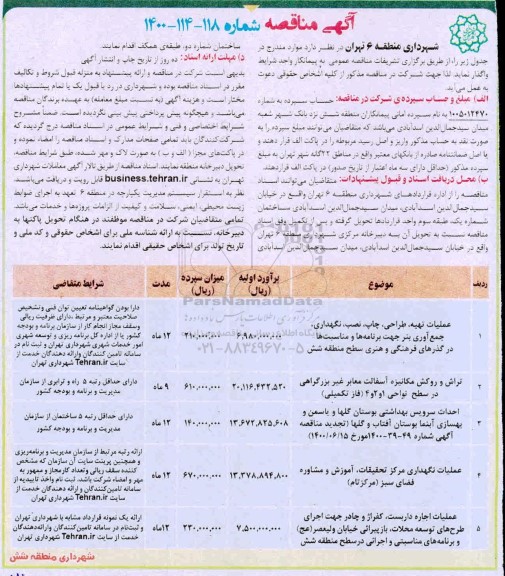 آگهی مناقصه شماره ۱۱۸-۱۱۴-۱۴۰۰
شهرداری منطقه ۶ تهران در نظر دارد موارد مندرج در
جدول زیر را، از طریق برگزاری تشریفات مناقصه عمومی به پیمانکار واجد شرایط
واگذار نماید. لذا جهت شرکت در مناقصه مذکور از کلیه اشخاص حقوقی دعوت
به عمل می‌آید.
الف) مبلغ و حساب سپرده‌ی شرکت در مناقصه: حساب سپرده به شماره
۱۰۰۵۰۱۲۴۷۰ به نام سپرده امانی پیمانکاران منطقه شش نزد بانک شهر شعبه
میدان سیدجمال‌الدین اسدآبادی می‌باشد که متقاضیان می‌توانند مبلغ سپرده را به
صورت نقد به حساب مذکور واریز و اصل رسید مربوطه را در پاکت الف قرار دهند و
یا اصل ضمانتنامه صادره از بانکهای معتبر واقع در مناطق ۲۲گانه شهر تهران به مبلغ
سپرده مذکور (حداقل دارای سه ماه اعتبار از تاریخ صدور) در پاکت الف قرار دهند.
ب) محل دریافت اسناد و قبول پیشنهادات: متقاضیان می‌توانند اسناد
مناقصه را از اداره قراردادهای شهرداری منطقه ۶ تهران واقع در خیابان
سیدجمال‌الدین اسدآبادی، میدان سیدجمال‌الدین اسدآبادی ساختمان
شماره یک، طبقه سوم واحد قراردادها تحویل گرفته و پس از تکمیل وفق اسناد
مناقصه نسبت به تحویل آن به دبیرخانه مرکزی شهرداری منطقه ۶ تهران
واقع در خیابان سیدجمال‌الدین اسدآبادی، میدان سیدجمال‌الدین اسدآبادی
ساختمان شماره دو، طبقه‌ی همکف اقدام نمایند.
د) مهلت ارائه اسناد: ده روز از تاریخ چاپ و انتشار آگهی
بدیهی است شرکت در مناقصه و ارائه پیشنهاد به منزله قبول شروط و تکالیف
مقرر در اسناد مناقصه بوده و شهرداری در رد یا قبول یک یا تمام پیشنهادها
مختار است و هزینه آگهی (به نسبت مبلغ معامله) به عهده‌ی برندگان مناقصه
می‌باشد و هیچگونه پیش پرداختی پیش بینی نگردیده است. ضمناً مشروح
شرایط اختصاصی و فنی و شرایط عمومی در اسناد مناقصه درج گردیده که
شرکت‌کنندگان باید تمامی صفحات مدارک و اسناد مناقصه را امضاء نموده و
در پاکت‌های مجزا (الف و ب) به صورت لاک و مهر شده، طبق شرایط مناقصه،
تحویل دبیرخانه منطقه نمایند. اسناد مناقصه از طریق تالار آگهی معاملات شهرداری
تهران به نشانی business.tehran.ir قابل رویت و دریافت می‌باشند.
نظر به استقرار سیستم مدیریت یکپارچه در منطقه ۶ تعهد به اجرای ضوابط
زیست محیطی، ایمنی، سلامت و کیفیت از الزامات پروژه‌ها و خدمات می‌باشد.
تمامی متقاضیان شرکت در مناقصه موظفند در هنگام تحویل پاکتها به
دبیرخانه، نسبت به ارائه شناسه ملی برای اشخاص حقوقی و کد ملی و
تاریخ تولد برای اشخاص حقیقی اقدام نمایند.
ردیف موضوع برآورد اولیه (ریال) میزان سپرده (ریال) مدت شرایط متقاضی
۱
عملیات تهیه، طراحی، چاپ، نصب، نگهداری،
جمع‌آوری بنر جهت برنامه‌ها و مناسبت‌ها
در گذرهای فرهنگی و هنری سطح منطقه شش
۶,۹۸۰,۰۰۰,۰۰۰
۲۱۰,۰۰۰,۰۰۰
۱۲ ماه
دارا بودن گواهینامه تعیین توان فنی و تشخیص
صلاحیت معتبر و مرتبط، دارای ظرفیت ریالی
وسقف مجاز انجام کار از سازمان برنامه و بودجه
کشور یا از اداره کل برنامه ریزی و توسعه شهری
امور خدمات شهری شهرداری تهران و ثبت نام در
سامانه تامین کنندگان وارائه دهندگان خدمت از
سایت Tehran.ir شهرداری تهران
۲
تراش و روکش مکانیزه آسفالت معابر غیر بزرگراهی
در سطح نواحی ۱و۲و۴ (فاز تکمیلی)
۲۰,۱۱۶,۴۳۲,۵۲۰
۶۱۰,۰۰۰,۰۰۰
۹ ماه
دارای حداقل رتبه ۵ راه و ترابری از سازمان
مدیریت و برنامه و بودجه کشور
۳
احداث سرویس بهداشتی بوستان گلها و یاسمن و
بهسازی آبنما بوستان آفتاب و گلها (تجدید مناقصه
آگهی شماره ۴۹-۳۹-۱۴۰۰مورخ ۱۴۰۰/۰۶/۱۵)
۱۳,۶۷۲,۸۲۵,۶۰۸
۱۴۰,۰۰۰,۰۰۰
۱۲ ماه
دارای حداقل رتبه ۵ ساختمان از سازمان
مدیریت و برنامه و بودجه کشور
۴
عملیات نگهداری مرکز تحقیقات، آموزش و مشاوره
فضای سبز (مرکزنام)
۱۳,۳۷۸,۸۹۴,۸۰۰
۶۷۰,۰۰۰,۰۰۰
۱۲ ماه
ارائه رتبه مرتبط از سازمان مدیریت و برنامه‌ریزی
و همچنین پرینت سایت آن سازمان که مشخص
کننده سقف ریالی وتعداد کارمجاز و ممهور به
مهر و امضاء شرکت باشد، ثبت نام واخذ تاییدیه از
سامانه تامین‌کنندگان و ارائه دهندگان خدمت از
سایت Tehran.ir شهرداری تهران
۵
عملیات اجاره داربست، کفراژ و چادر جهت اجرای
طرح‌های توسعه محلات، بازپیرائی خیابان ولیعصر(عج)
و برنامه‌های مناسبتی و اجرائی درسطح منطقه شش
۷,۵۰۰,۰۰۰,۰۰۰
۲۳۰,۰۰۰,۰۰۰
۱۲ماه
ارائه یک نمونه قرارداد مشابه با شهرداری تهران
و ثبت‌نام در سامانه تامین‌کنندگان وارائه‌دهندگان
خدمت از سایت Tehran.ir شهرداری تهران
ParsNamadData
۰۲۱-۸۸۳۴۹۶۷۰-۵
شهرداری منطقه شش